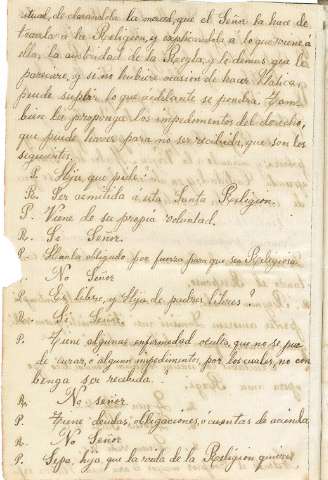 ritual, declarandola la merced, que el Señor la hace de
traerla a la Religion, y explicandola á lo que viene á
ella, la austeridad de la Regla, y lo demas que le
pareciere, y si no hubiere ocasion de hacer Platica,
puede suplir lo que adelante se pondrá. Tam-
bien la proponga los impedimentos del derecho,
que puede haver para no ser recibida, que son los
siguientes.
P. Hija, que pide?
R. Ser admitida á esta Santa Religion.
P. Viene de su propia voluntad.
R. Si Señor.
P. Hanla obligado por fuerza para que sea Religiosa
No Señor
Es libre, y Hija de padres libres?
R. Si Señor
P. Tiene alguna enfermedad oculta, que no se pue-
de curar, o algun impedimento, por los cuales, no con-
benga ser recibida.
R. No señor
P. Tiene deudas, obligaciones, o cuentas de acienda
R. No Señor
P. Sepa, hija, que la vida de la Religion quiere